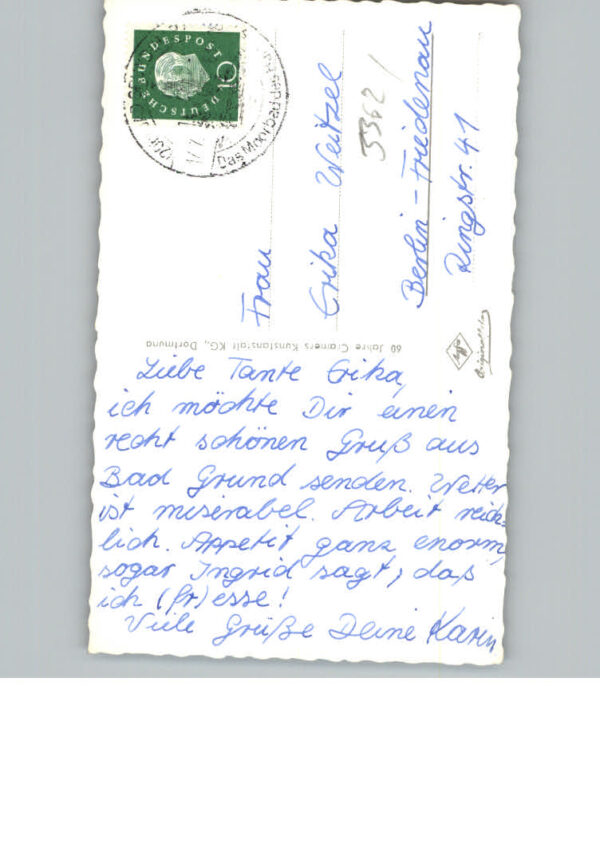 DEUTSCHE BUNDESPOST
10
Frau
Erika Weitzel
Berlin - Friedenau
Ringstr. 41
60 Jahre Cramers Kunstanstalt KG., Dortmund
Liebe Tante Erika,
ich möchte Dir einen
recht schönen Gruß aus
Bad Grund senden. Wetter
ist miserabel. Arbeit reich-
lich. Appetit ganz enorm,
sogar Ingrid sagt, daß
ich (fr)esse!
Viele Grüße Deine Karin